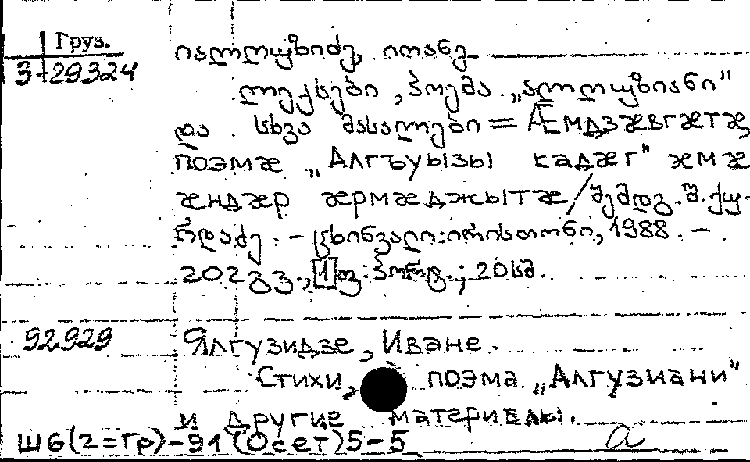 Груз.
3-29324
იალღუზიძე, იოანე
ლექსები, პოემა „ალღუზიანი"
და სხვა მასალები = Æмдзæвгæтæ
поэмæ „Алгъуызы кадæг" æмæ
æндæр æрмæджытæ / შემდგ. შ. ქუ-
რდაძე. – ცხინვალი: ირისთონი, 1988. –
202 გვ., [1] ფ. პორტ.; 20 სმ.
92929
Ялгузидзе, Иванe.
Стихи, поэма „Алгузиани"
и другие материалы.
Ш6(2=Гр)-91(Осет)5-5
а